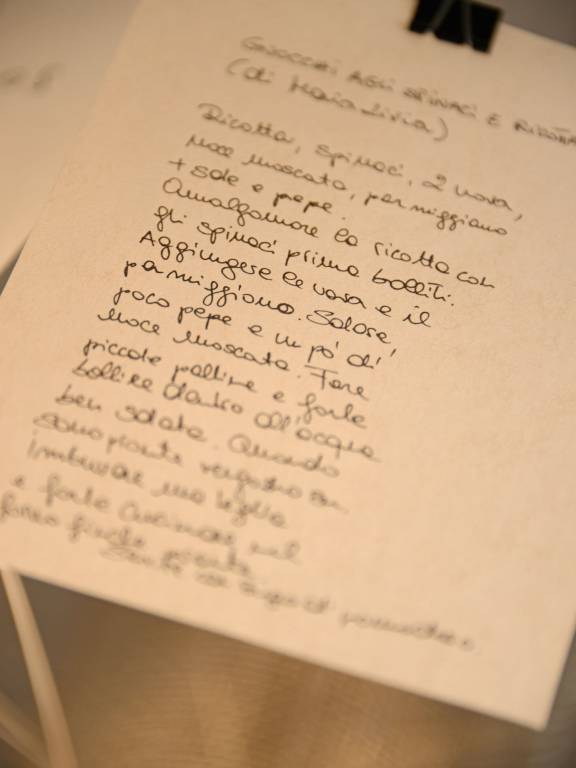 GNOCCHI AGLI SPINACI E RICOTTA
(di Maria Livia)
Ricotta, spinaci, 2 uova,
noce moscata, parmiggiano
+ sale e pepe.
Amalgamare la ricotta con
gli spinaci prima bolliti.
Aggiungere le uova e il
parmiggiano. Salare,
poco pepe e un pò di
noce moscata. Fare
piccole palline e farle
bollire dentro all'acqua
ben salata. Quando
sono pronte vengono su.
Imburrare una teglia
e farle cucinare nel
forno